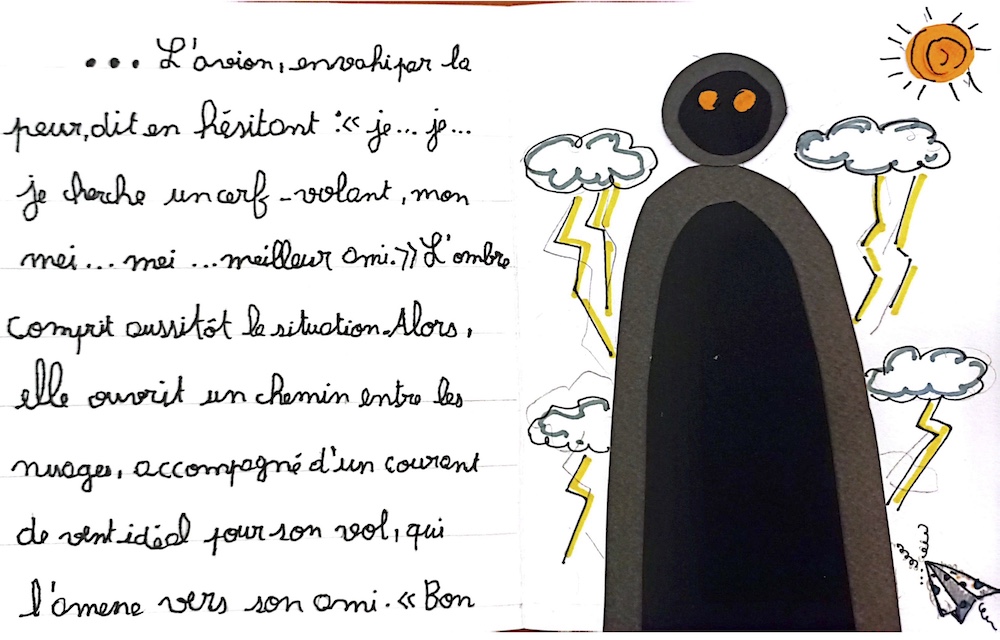 ... L'avion, envahi par la
peur, dit en hésitant : « je... je...
je cherche un cerf-volant, mon
mei... mei... meilleur ami.» L'ombre
comprit aussitôt la situation. Alors,
elle ouvrit un chemin entre les
nuages, accompagné d'un courant
de vent idéal pour son vol, qui
l'amene vers son ami. « Bon